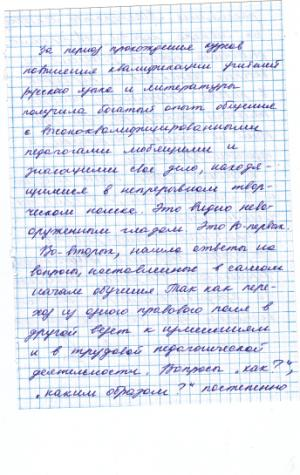 За период прохождения курсов
повышения квалификации учителей
русского языка и литературы
получила богатый опыт общения
с высококвалифицированными
педагогами любящими и
знающими свое дело, находя-
щимися в непрерывном твор-
ческом поиске. Это видно нево-
оруженным глазом. Это во-первых.
Во-вторых, нашла ответы на
вопросы, поставленные в самом
начале обучения. Так как пере-
ход из одного правового поля в
другой ведет к изменениям
и в трудовой педагогической
деятельности. Вопросы „как?“,
„каким образом?“ постепенно